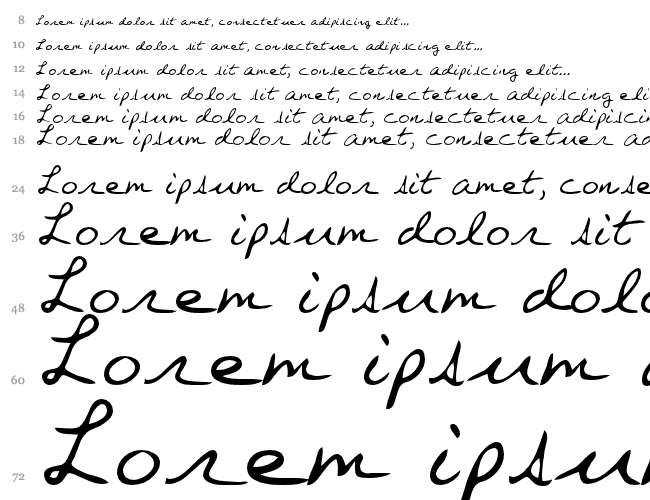 8 Lorem ipsum dolor sit amet, consectetuer adipiscing elit...
10 Lorem ipsum dolor sit amet, consectetuer adipiscing elit...
12 Lorem ipsum dolor sit amet, consectetuer adipiscing elit...
14 Lorem ipsum dolor sit amet, consectetuer adipiscing eli
16 Lorem ipsum dolor sit amet, consectetuer adipiscin
18 Lorem ipsum dolor sit amet, consectetuer ad
24 Lorem ipsum dolor sit amet, conse
36 Lorem ipsum dolor sit
48 Lorem ipsum dolo
60 Lorem ipsum
72 Lorem ipsu